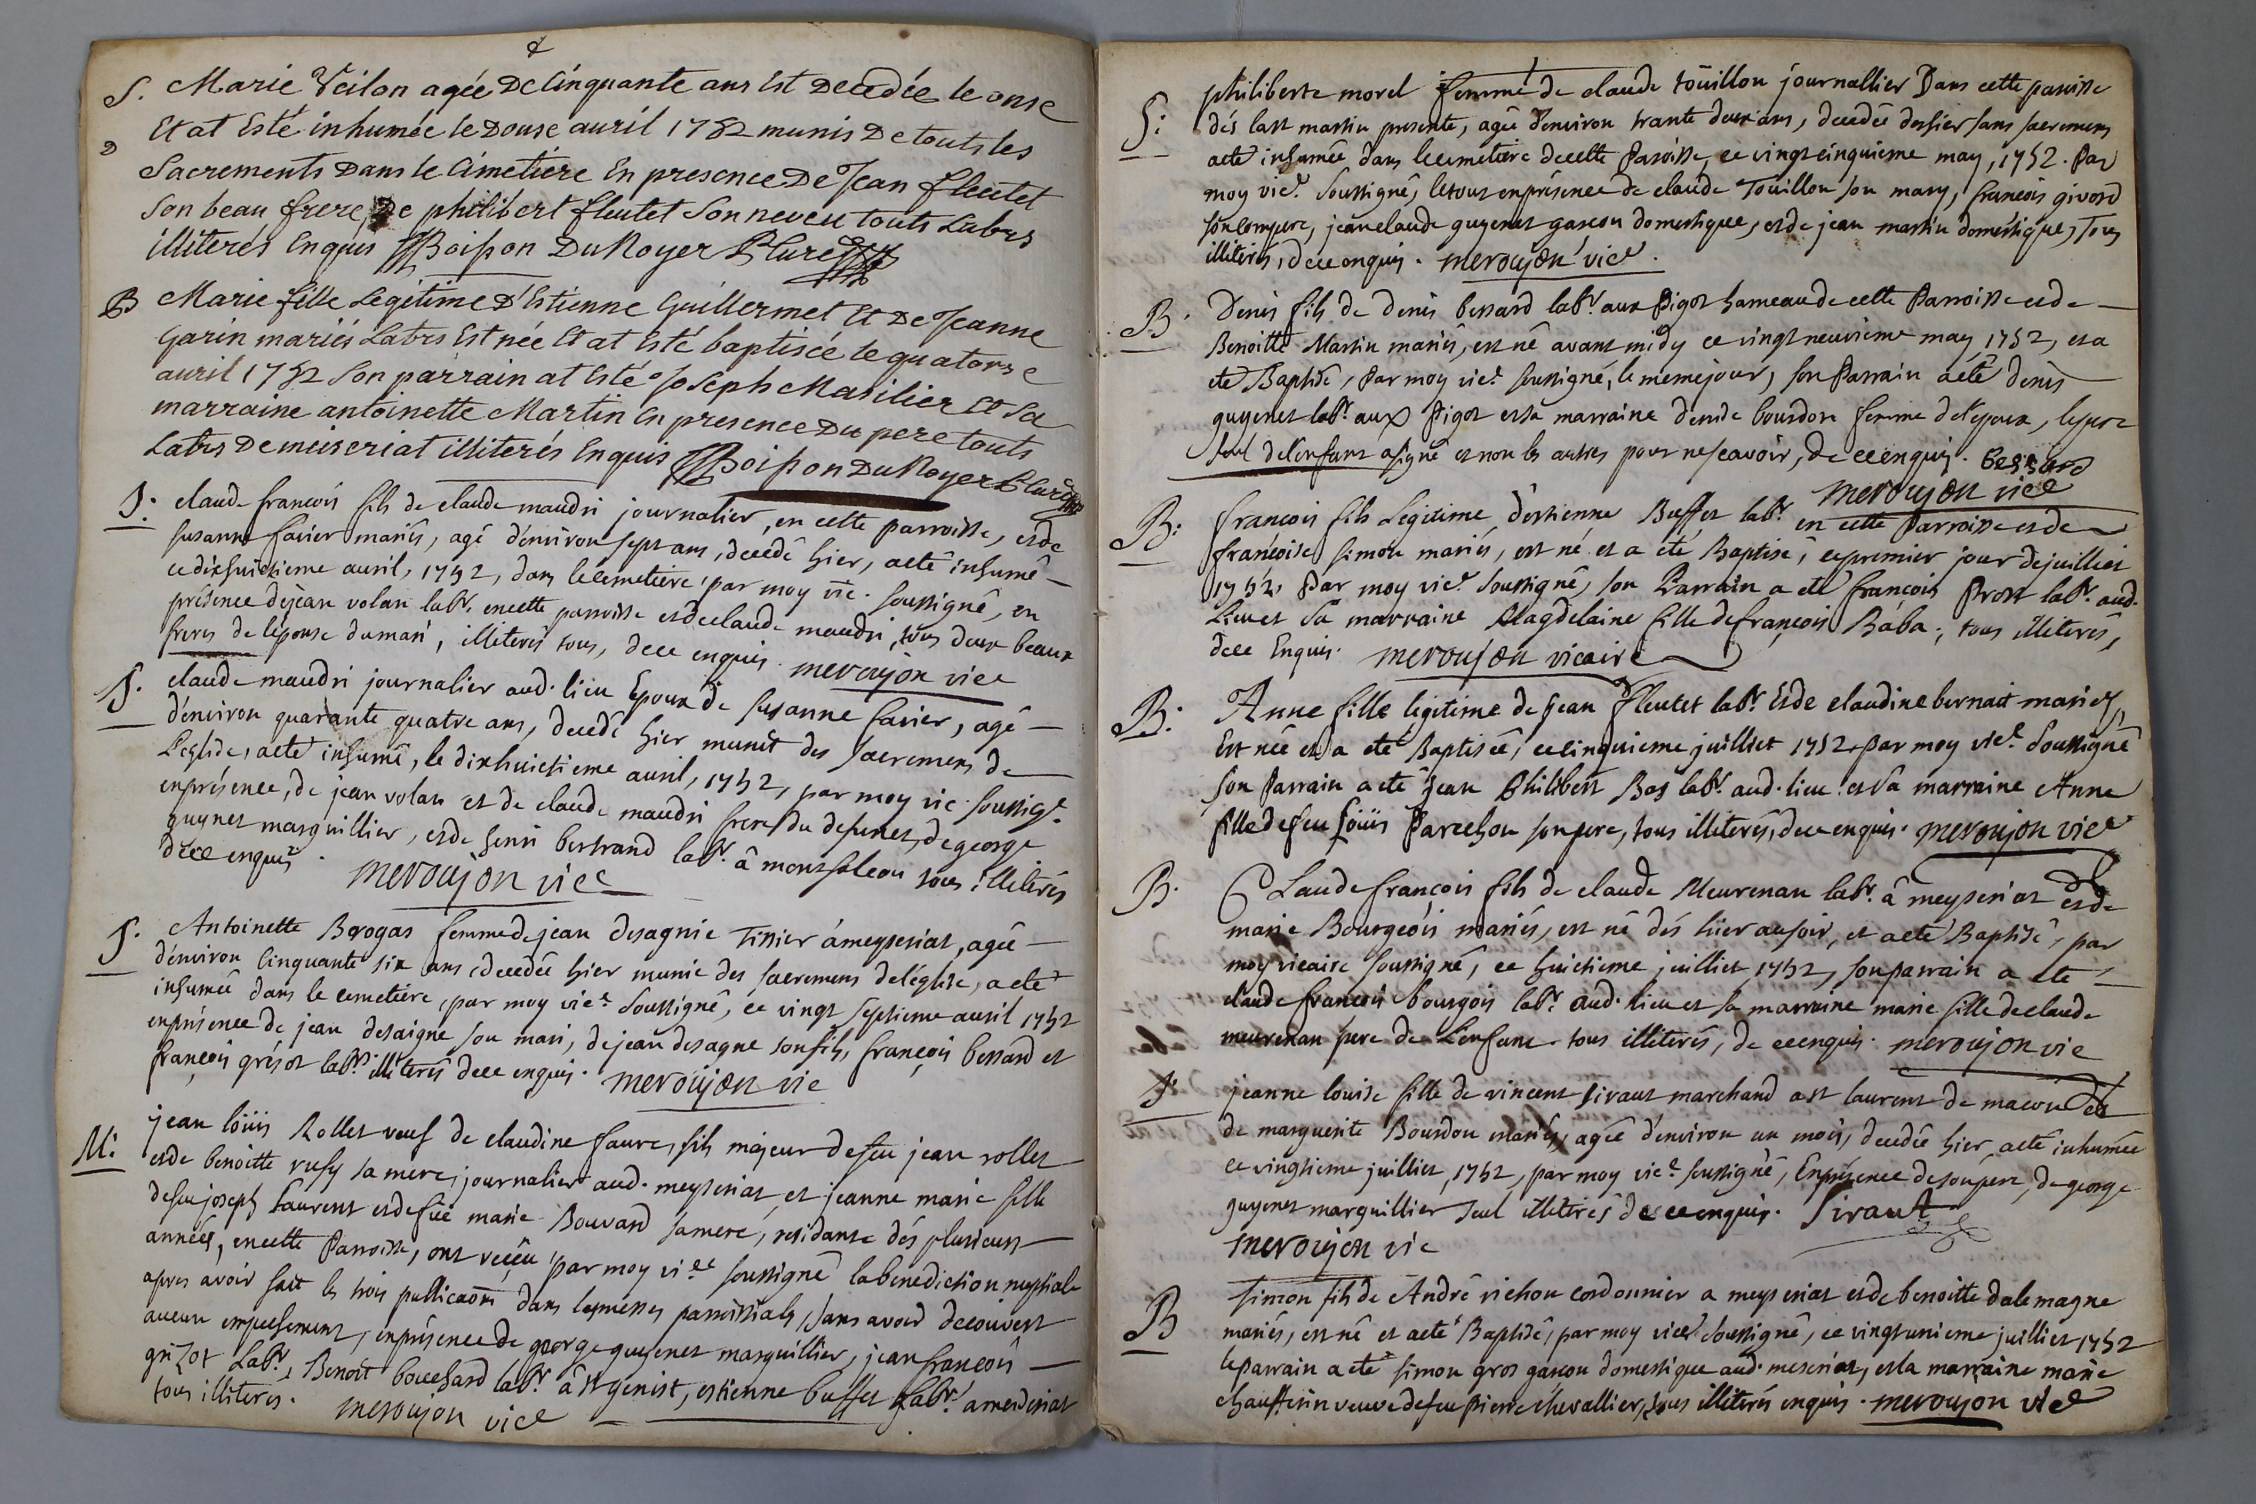 S. Marie Veilon agée De Cinquante ans Est Decedée le onse
Et at Esté inhumée le Douse auril 1752 munis De touts les
Sacrements Dans le Cimetiere En presence De Jean fleutet
Son beau frere, De philibert fleutet Son neveu touts Labrs
illiterés Enquis Boisson DuNoyer Curé
B Marie fille Legitime D'Estienne Guillermet Et De Jeanne
Garin mariés Labrs Est née Et at Esté baptisée le quatorse
auril 1752 Son parrain at Esté Joseph Masilier Et Sa
marraine antoinette Martin En presence Du pere touts
Labrs De meiseriat illiterés Enquis Boisson DuNoyer Curé
S. claude francois fils de claude maudri journalier, en cette parroisse, et de
susanne favier mariés, agé d'environ sept ans, decedé hier, a eté inhumé
ce dixhuictieme auril, 1752, dans le cemetiere par moy vic. soussigné, en
présence de jean volan labr. en cette parroisse et de claude maudri, tous deux beaux
freres de l'épouse du mari, illiterés tous, de ce enquis. meroujon vice
S. claude maudri journalier aud. lieu Epoux de susanne favier, agé
d'environ quarante quatre ans, decedé hier munit des sacremens de
L'eglise, a eté inhumé, le dixhuictieme auril, 1752, par moy vic. soussigé.
en présence, de jean volan et de claude maudri frere du defunct, de george
guynet marguillier, et de henri bertrand labr. â montfaleon tous illiterés
de ce enquis. meroujon vice
S. Antoinette Brogas femme de jean desagnie Tissier â meyseriat, ageé
d'environ Cinquante six ans decedée hier munie des sacremens de l'église, a eté
inhumée dans le cemetiere, par moy vice. Soussigné, ce vingt septieme auril 1752
en présence de jean desaigne son mari, de jean desagne son fils, françois bessard et
françois grisot labrs. illiterés de ce enquis. meroujon vic
M: jean loüis Rollet veuf de claudine faure, fils majeur de feu jean rollet
et de benoitte rufy sa mere, journalier aud. meyseriat, et jeanne marie fille
de feu joseph Laurent et de feüe marie Bouvard sa mere, residante dés plusieurs
années, en cette Parroisse, ont reçeu par moy vice soussigné la benediction nuptiale
apres avoir fait les trois publicaõns dans les messes parroissiales, sans avoir decouvert
aucun empeschement, en présence de george guyenet marguillier, jean francois
grizot Labr, Benoit bouchard labr. â st genist, estienne buffet Labr. a meiseriat
tous illiterés. meroujon vice
S: philiberte morel femme de claude toüillon journallier Dans cette paroisse
dés la st martin presente, agée d'environ trante deux ans, decedée dehier sans sacremens
a eté inhumée, dans le cemetiere de cette Paroisse, ce vingt cinquieme may, 1752. Par
moy vice. Soussigné, le tout en présence de claude Toüillon son mary, francois givord
son compere, jean claude guyenet garcon domestique, et de jean martin doméstique, Tous
illiterés, de ce enquis. merovjon vice.
B. Denis fils de denis bessard labr. aux Pigot hameau de cette Parroisse et de
Benoitte Martin mariés, est né avant midy ce vingt neuvieme may, 1752, et a
eté Baptisé, Par moy vice. soussigné, le meme jour, son Parrain a été denis
guyenet labr. aux Pigot et sa marraine denise bourdon femme de l'epoux, le pere
seul de l'enfant a signé et non les autres pour ne scavoir, de ce enquis. bessard
merovjon vice
B: francois fils Legitime d'estienne Buffet labr. en cette Parroisse et de
françoise simon mariés, est né et a eté Baptisé, ce premier jour de juilliet
1752, Par moy vice. Soussigné, son Parrain a eté francois Prost labr. aud.
Lieu et Sa marraine Magdelaine fille de françois Bába; tous illiterés,
de ce Enquis. merovjon vicaire
B: Anne fille légitime de jean Fleutet labr. Et de claudine bernait mariez,
Est née et a eté Baptisée, ce cinquieme juilliet 1752. par moy vice. Soussigné
son Parrain a eté jean Philibert Bos labr. aud. lieu et sa marraine Anne
fille de feu Loüis Parcehou son pere, tous illiterés, de ce enquis. merovjon vice
B. Claude françois fils de claude Meurenan labr. â meyseriat et de
marie Bourgeois mariés, est né dés hier au soir, et a eté Baptisé, par
moy vicaire soussigné, ce huictieme juilliet 1752, son parrain a eté
claude francois bourgois labr. aud. lieu et sa marraine marie fille de claude
meurenan pere de L'enfant tous illiterés, de ce enquis. merovjon vic
S: jeanne louise fille de vincent siraut marchand a st laurent de macon et
de marguerite Bourdon mariés, agée d'environ un mois, decedée hier, a eté inhumée
ce vingtieme juilliet, 1752, par moy vice. soussigné, En présence de son pere, de george
guyenet marguillier seul illiterés de ce enquis. Siraut
merovjon vic
B Simon fils de André vichou cordonnier a meyseriat et de benoitte dalemagne
mariés, est né et a eté Baptisé, par moy vice. Soussigné, ce vingt unieme juilliet 1752
le parrain a eté simon gros garcon domestique aud. meseriat, et la marraine marie
chaufferin veuve de feu pierre chevallier, tous illiterés enquis. merovjon vice